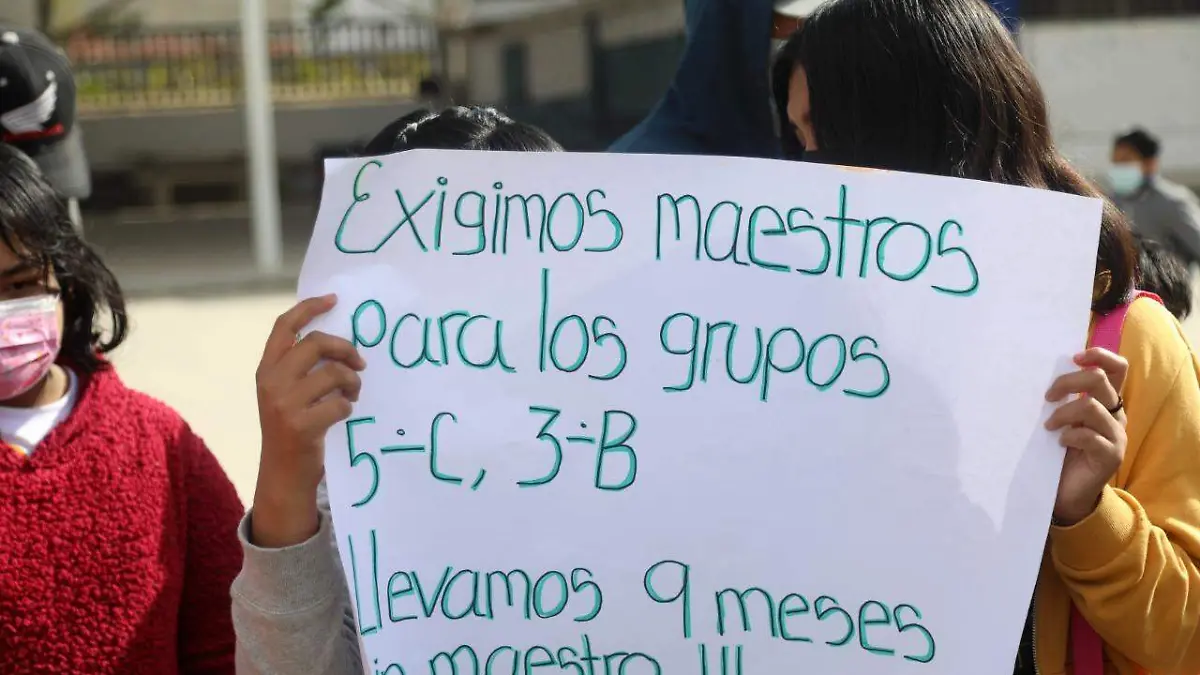 Exigimos maestros
para los grupos
5÷C, 3÷B
Llevamos 9 meses
sin maestro !!!